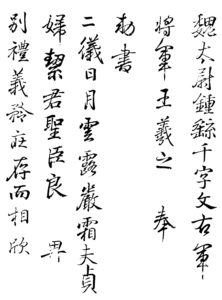 魏太尉鍾繇千字文右軍
將軍王羲之奉
勅書
二儀日月雲露嚴霜夫貞
婦潔君聖臣良 
別禮義矜莊存而相欣